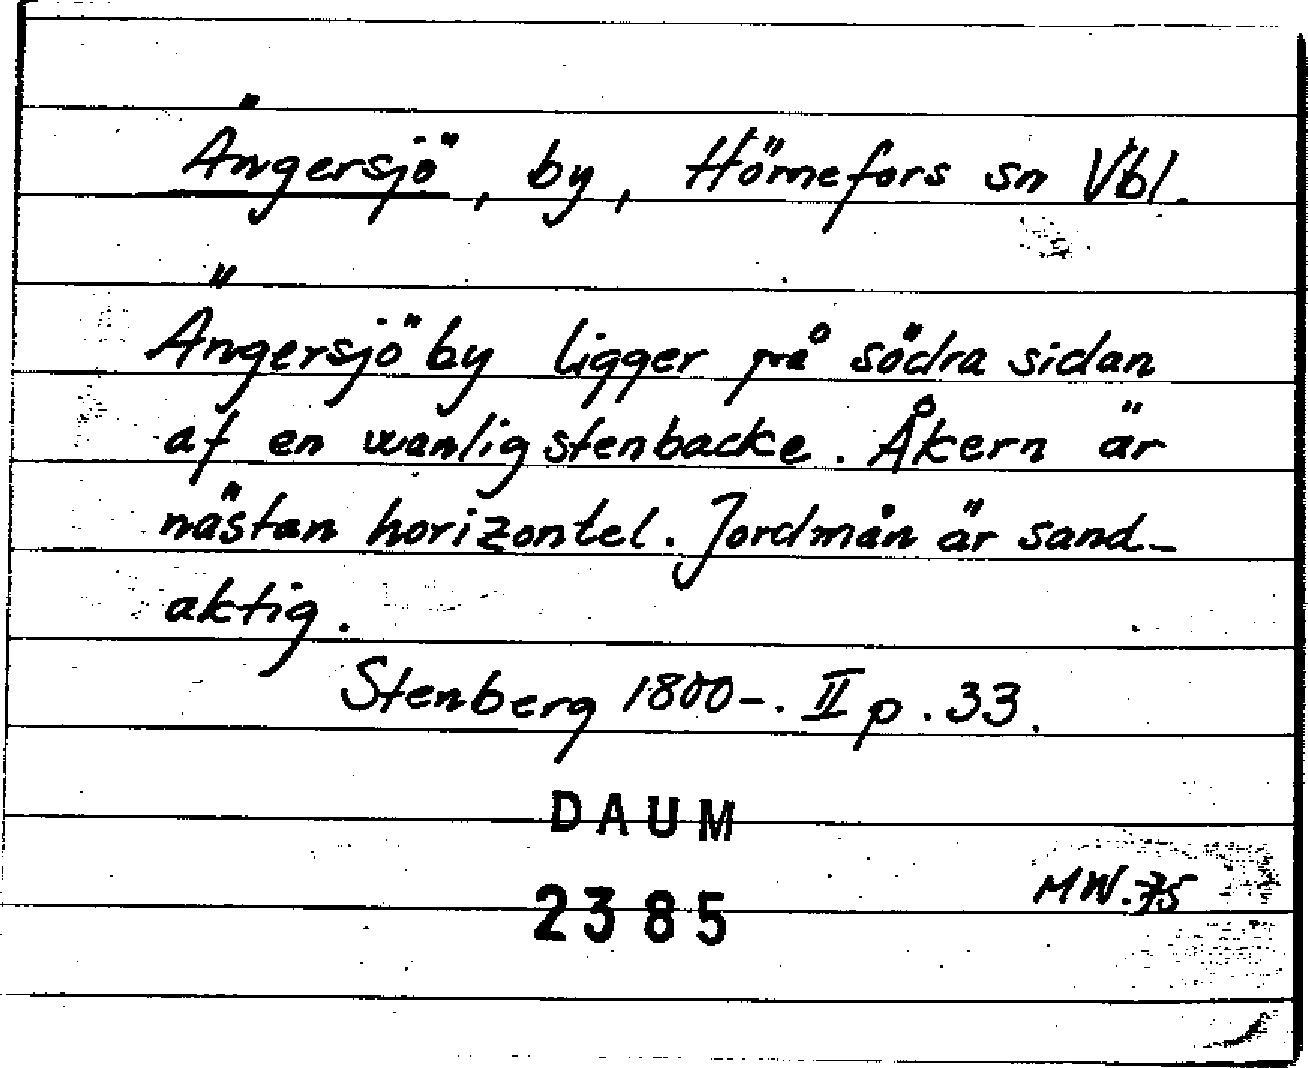 Ängersjö, by, Hörnefors sn Vbl.
Ängersjö by ligger på södra sidan
af en wanlig stenbacke. Åkern är
nästan horizontel. Jordmån är sand-
aktig.
Stenberg 1800-. II p. 33.
DAUM
2385
MW.75